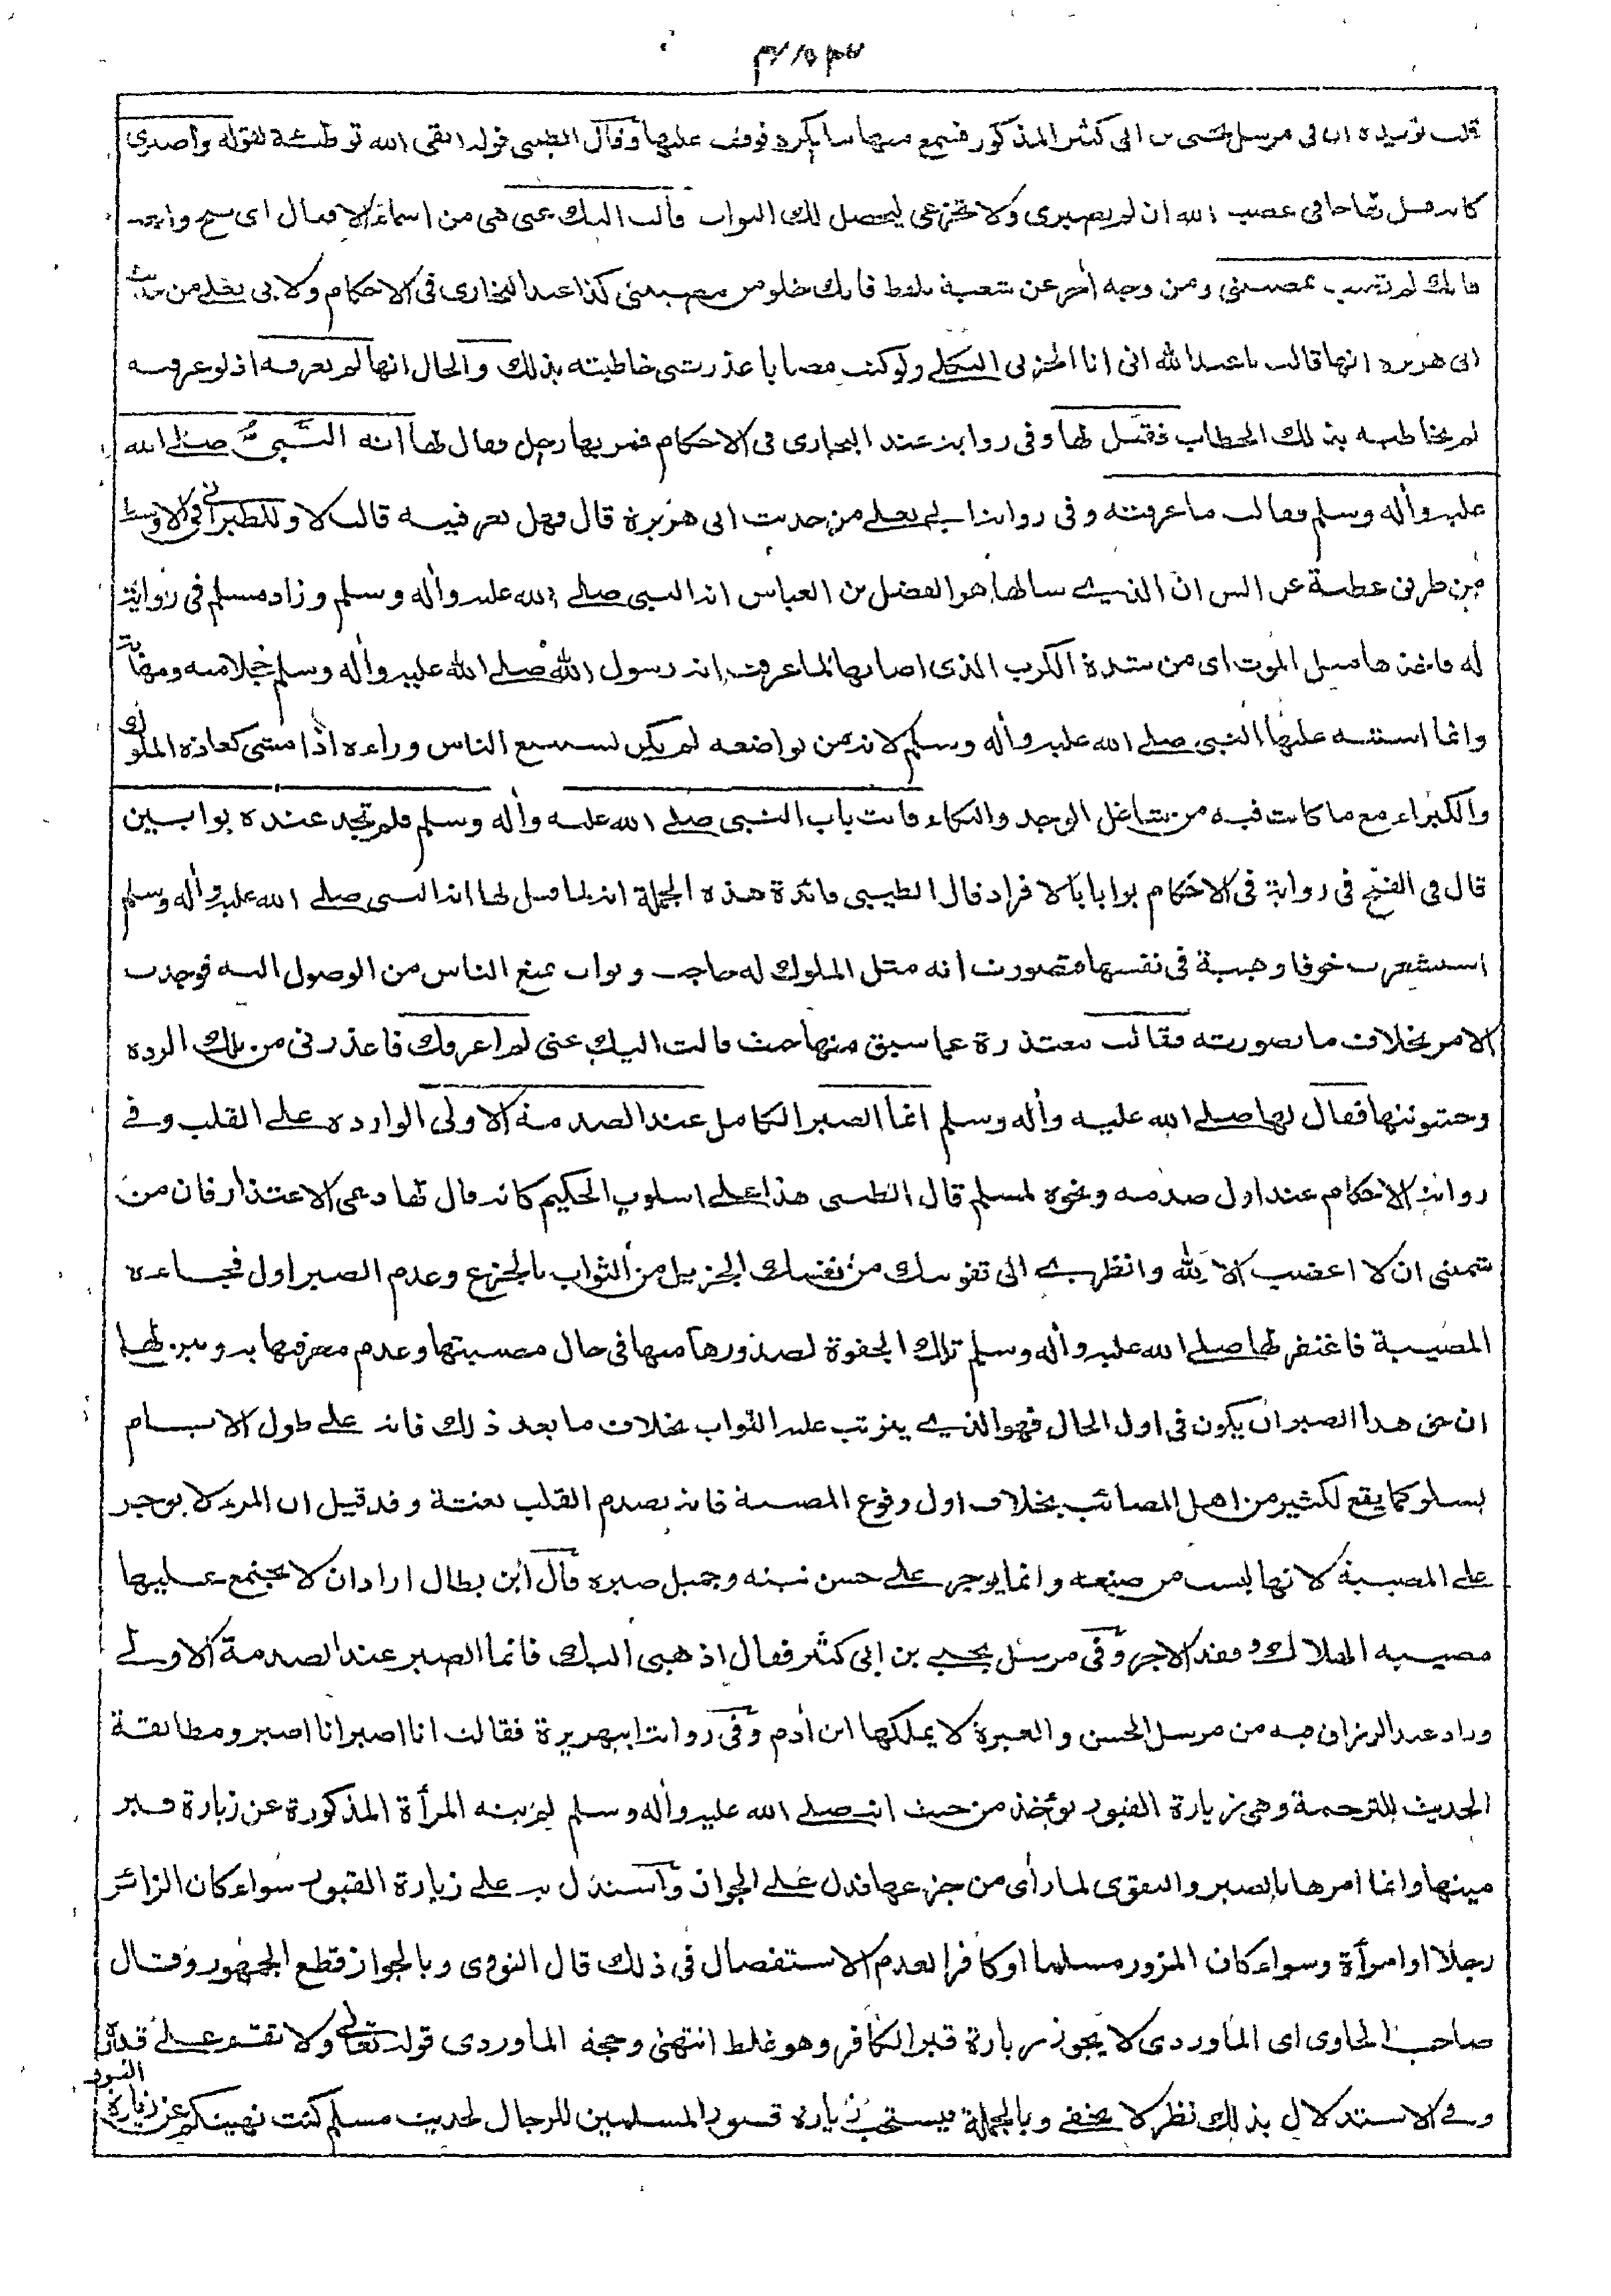 قلت يؤيده ان في مرسل يحيى بن ابي كثير المذكور فسمع منها ما يكره فوقف عليها وقال الطيبي قوله اتقي الله توطئة لقوله واصبري
كانه قيل لها خافي غضب الله ان لم تصبري ولا تجزعي ليحصل لك الثواب قالت اليك عني هي من اسماء الافعال اى تنح وابعد
فانك لم تصب بمصيبتي ومن وجه أخر عن شعبة بلفظ فانك خلو من مصيبتي كذا عند البخارى فى الاحكام ولابى يعلى من حديث
ابى هريرة انها قالت يا عبد الله انى انا الحزنى الثكلى ولو كنت مصابا عذرتني خاطبته بذلك والحال انها لم تعرفه اذ لو عرفته
لم تخاطبه بذلك الخطاب فقيل لها وفى رواية عند البخارى فى الاحكام فمر بها رجل فقال لها انه النبى صلى الله
عليه وأله وسلم فقالت ما عرفته وفى رواية ابى يعلى من حديث ابى هريرة قال فهل تعرفينه قالت لا وللطبرانى فى الاوسط
من طريق عطية عن انس ان الذى سالها هو الفضل بن العباس انه النبى صلى الله عليه وأله وسلم وزاد مسلم فى رواية
له فاخذها مثل الموت اى من شدة الكرب الذى اصابها لما عرفت انه رسول الله صلى الله عليه وأله وسلم خجلا منه ومهابة
وانما اشتبه عليها النبى صلى الله عليه وأله وسلم لانه من تواضعه لم يكن يستتبع الناس وراءه اذا مشى كعادة الملوك
والكبراء مع ما كانت فيه من شاغل الوجد والبكاء فاتت باب النبى صلى الله عليه وأله وسلم فلم تجد عنده بوابين
قال فى الفتح فى رواية فى الاحكام بوابا بالافراد قال الطيبى فائدة هذه الجملة انه لما قيل لها انه النبى صلى الله عليه وأله وسلم
استشعرت خوفا وهيبة فى نفسها فتصورت انه مثل الملوك له حاجب وبواب يمنع الناس من الوصول اليه فوجدت
الامر بخلاف ما تصورته فقالت معتذرة عما سبق منها حيث قالت اليك عنى لم اعرفك فاعذرنى من تلك الردة
وخشونتها فقال لها صلى الله عليه وأله وسلم انما الصبر الكامل عند الصدمة الاولى الواردة على القلب وفى
رواية الاحكام عند اول صدمة ونحوه لمسلم قال الطيبى هذا على اسلوب الحكيم كانه قال لها دعى الاعتذار فان من
شيمتى ان لا اغضب الا لله وانظرى الى تفويتك من نفسك الجزيل من الثواب بالجزع وعدم الصبر اول فجاءة
المصيبة فاغتفر لها صلى الله عليه وأله وسلم تلك الجفوة لصدورها منها فى حال مصيبتها وعدم معرفتها به وبين لها
ان حق هذا الصبر ان يكون فى اول الحال فهو الذى يترتب عليه الثواب بخلاف ما بعد ذلك فانه على طول الايام
يسلو كما يقع لكثير من اهل المصائب بخلاف اول وقوع المصيبة فانه يصدم القلب بغتة وقد قيل ان المرء لا يوجر
على المصيبة لانها ليست من صنعه وانما يوجر على حسن نيته وجميل صبره قال ابن بطال اراد ان لا يجتمع عليها
مصيبة الهلاك وفقد الاجر وفى مرسل يحيى بن ابى كثير فقال اذهبى اليك فانما الصبر عند الصدمة الاولى
وزاد عبد الرزاق فيه من مرسل الحسن والعبرة لا يملكها ابن أدم وفى رواية ابيهريرة فقالت انا اصبر انا اصبر ومطابقة
الحديث للترجمة وهى زيارة القبور يؤخذ من حيث انه صلى الله عليه وأله وسلم لم ينه المرأة المذكورة عن زيارة قبر
ميتها وانما امرها بالصبر والتقوى لما رأى من جزعها فدل على الجواز واستدل به على زيارة القبور سواء كان الزائر
رجلا او امرأة وسواء كان المزور مسلما او كافرا لعدم الاستفصال فى ذلك قال النووى وبالجواز قطع الجمهور وقال
صاحب الحاوى اى الماوردى لا يجوز زيارة قبر الكافر وهو غلط انتهى وحجة الماوردى قوله تعالى ولا تقم على قبره
وفى الاستدلال بذلك نظر لا يخفى وبالجملة فيستحب زيارة قبور المسلمين للرجال لحديث مسلم كنت نهيتكم عن زيارة القبور